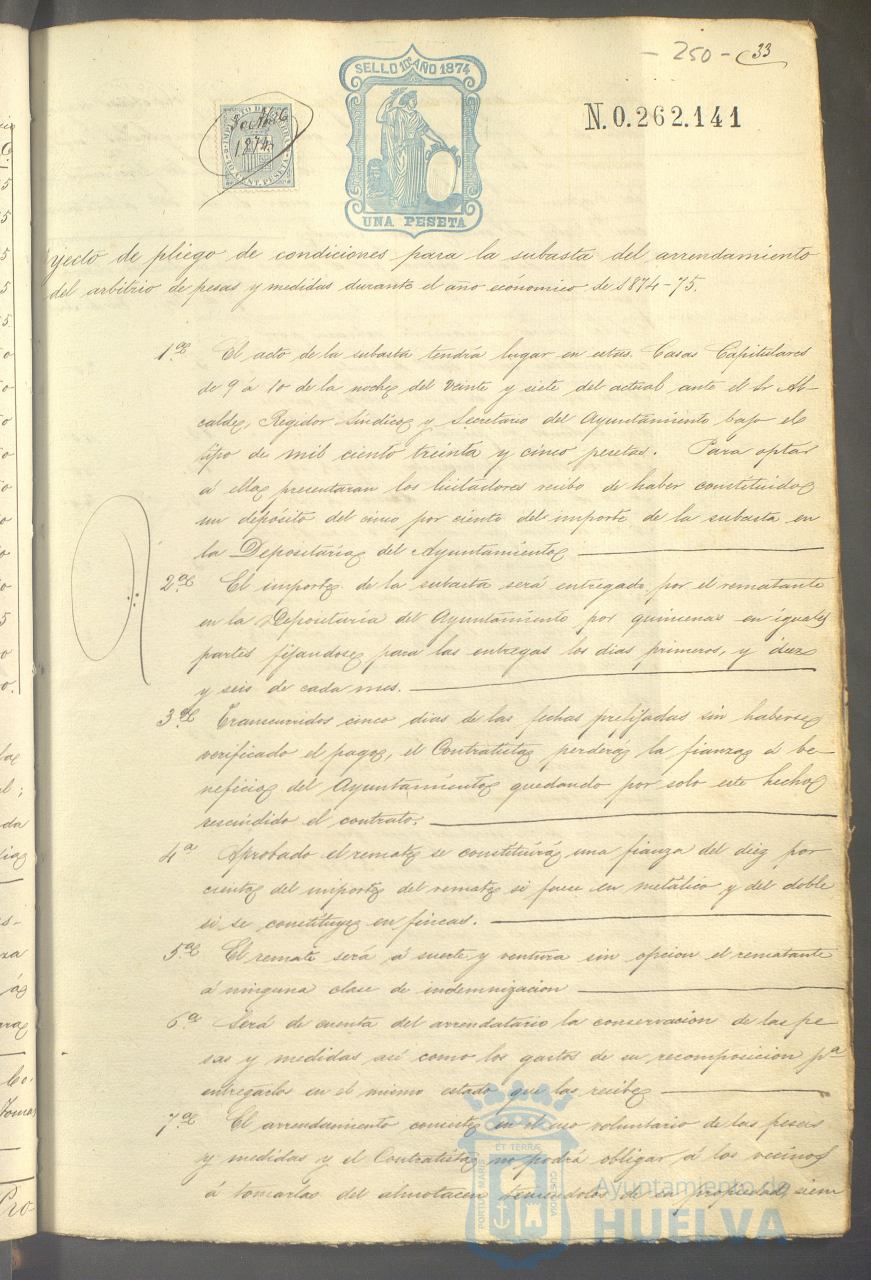 - 250 - 33
SELLO 10º AÑO 1874
N. 0.262.141
IMPUESTO DE
1874
10 CENT. PESETA
UNA PESETA
yecto de pliego de condiciones para la subasta del arrendamiento
del arbitrio de pesas y medidas durante el año económico de 1874-75.
1ª El acto de la subasta tendrá lugar en estas Casas Capitulares
de 9 á 10 de la noche del veinte y siete del actual ante el Sr Al-
calde, Regidor Síndico y Secretario del Ayuntamiento bajo el
tipo de mil ciento treinta y cinco pesetas. Para optar
á ella presentaran los licitadores recibo de haber constituido
un depósito del cinco por ciento del importe de la subasta en
la Depositaria del Ayuntamiento
2ª El importe de la subasta será entregado por el rematante
en la Depositaria del Ayuntamiento por quincenas en iguales
partes fijandose para las entregas los dias primeros, y diez
y seis de cada mes.
3ª Transcurridos cinco dias de las fechas prefijadas sin haberse
verificado el pago, el Contratista perdera la fianza á be-
neficio del Ayuntamiento quedando por solo este hecho
rescindido el contrato.
4ª Aprobado el remate se constituirá una fianza del diez por
ciento del importe del remate si fuese en metálico y del doble
si se constituye en fincas.
5ª El remate será á suerte y ventura sin opcion el rematante
á ninguna clase de indemnizacion
6ª Será de cuenta del arrendatario la conservacion de las pe-
sas y medidas asi como los gastos de su recomposicion pª
entregarlos en el mismo estado que las recibe
7ª El arrendamiento consiste en el uso voluntario de las pesas
y medidas y el Contratista no podrá obligar á los vecinos
á tomarlas del almotacen teniendolos de su propiedad, siem
PORTUS MARIS ET TERRÆ CUSTODIA
Ayuntamiento de
HUELVA